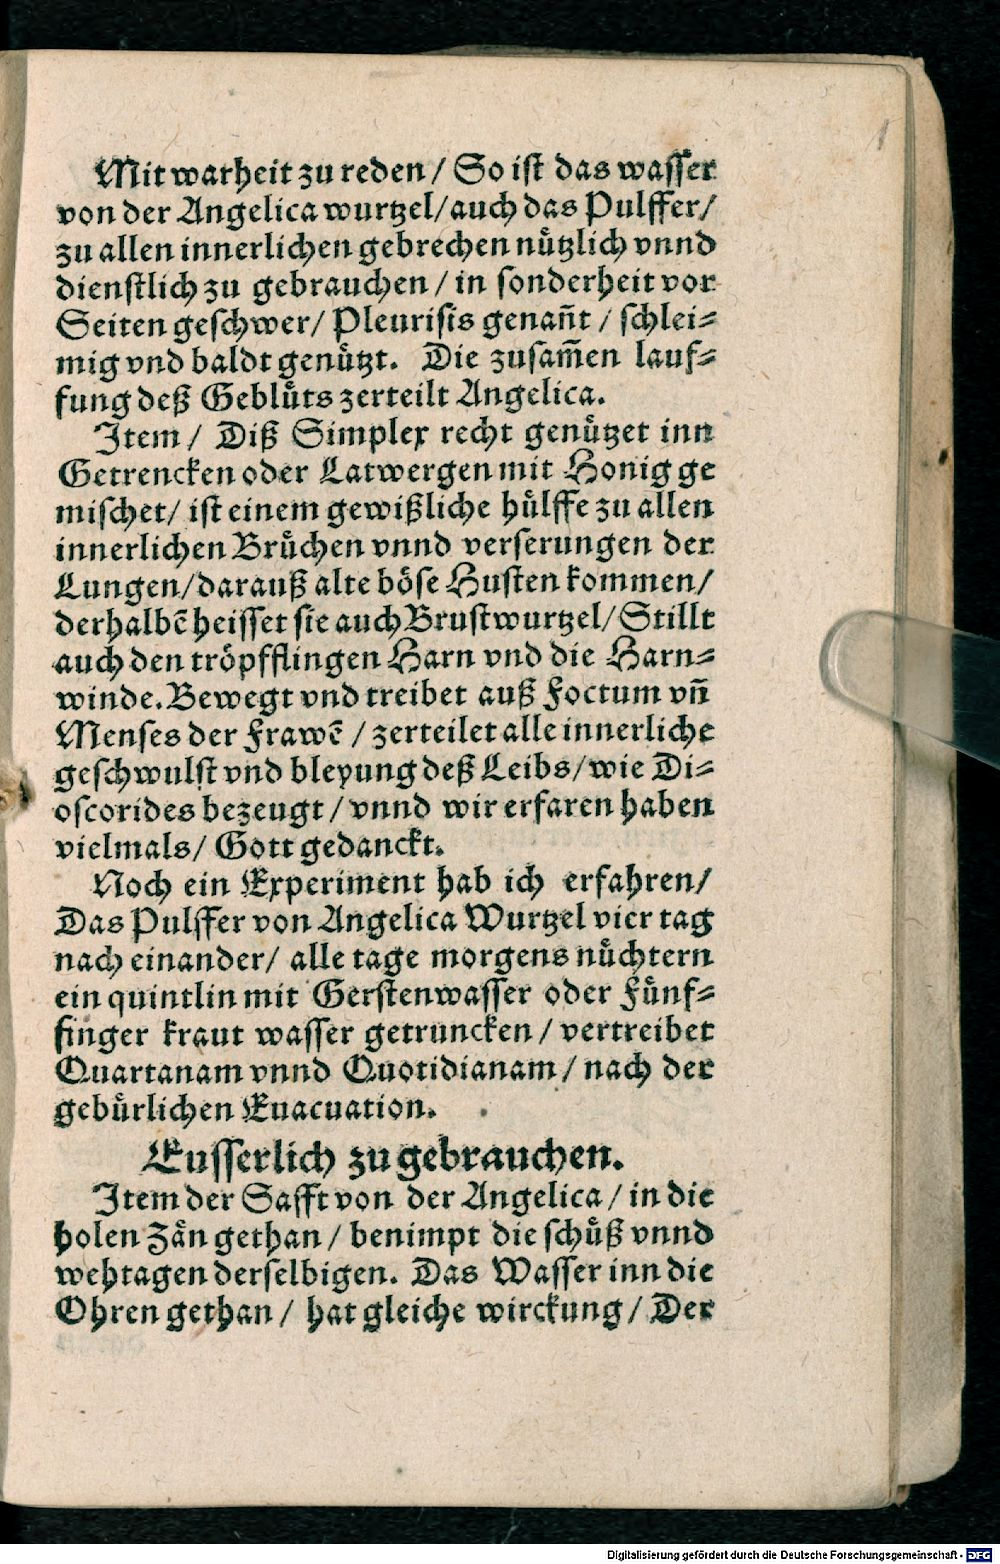 Mit warheit zu reden / So ist das wasser
von der Angelica wurtzel/ auch das Pulffer/
zu allen innerlichen gebrechen nuͤtzlich vnnd
dienstlich zu gebrauchen / in sonderheit vor
Seiten geschwer/ Pleurisis genañt / schlei⸗
mig vnd baldt genuͤtzt. Die zusam̃en lauf⸗
fung deß Gebluͤts zerteilt Angelica.
Item / Diß Simplex recht genuͤtzet inn
Getrencken oder Latwergen mit Honig ge
mischet/ ist einem gewißliche huͤlffe zu allen
innerlichen Bruͤchen vnnd verserungen der
Lungen/ darauß alte boͤse Husten kommen/
derhalbẽ heisset sie auch Brustwurtzel/ Stillt
auch den troͤpfflingen Harn vnd die Harn⸗
winde. Bewegt vnd treibet auß Foctum vñ
Menses der Frawẽ / zerteilet alle innerliche
geschwulst vnd bleyung deß Leibs/ wie Di⸗
oscorides bezeugt / vnnd wir erfaren haben
vielmals/ Gott gedanckt.
Noch ein Experiment hab ich erfahren/
Das Pulffer von Angelica Wurtzel vier tag
nach einander/ alle tage morgens nuͤchtern
ein quintlin mit Gerstenwasser oder Fuͤnf⸗
finger kraut wasser getruncken / vertreibet
Quartanam vnnd Quotidianam / nach der
gebuͤrlichen Euacuation.
Eusserlich zu gebrauchen.
Item der Safft von der Angelica / in die
holen Zaͤn gethan / benimpt die schuͤß vnnd
wehtagen derselbigen. Das Wasser inn die
Ohren gethan / hat gleiche wirckung / Der
Digitalisierung gefördert durch die Deutsche Forschungsgemeinschaft - DFG